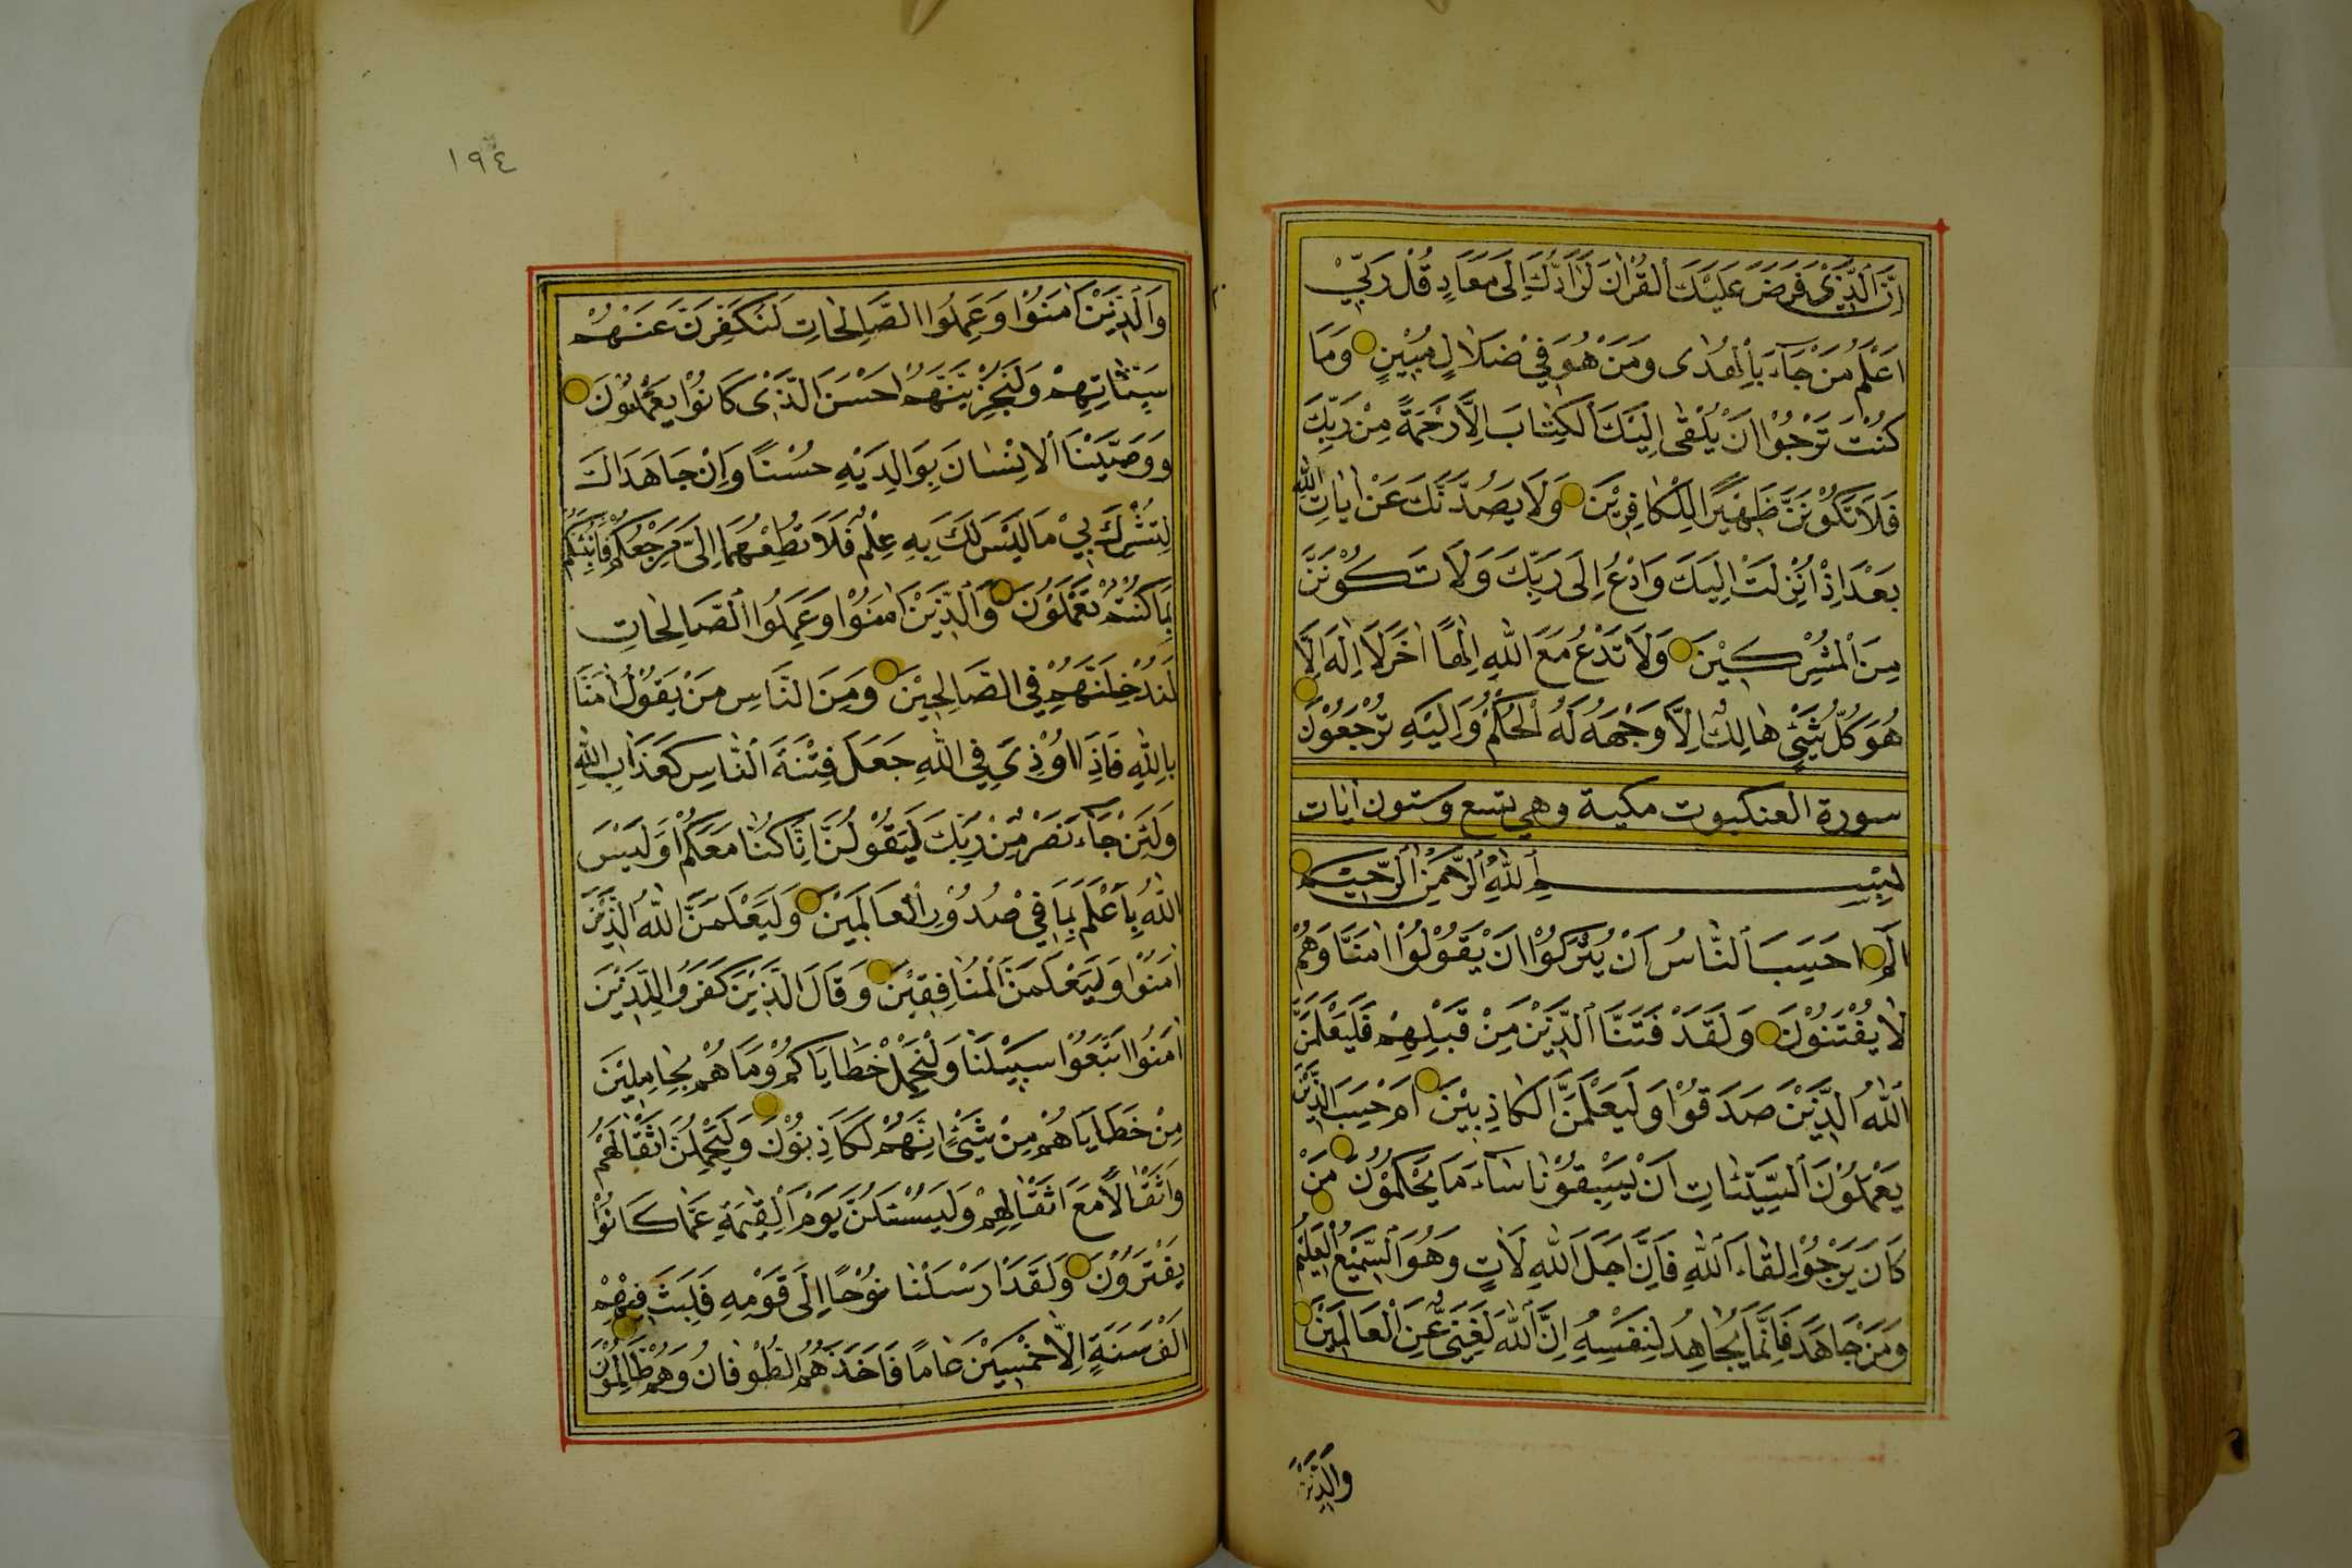 اِنَّ الَّذ۪ي فَرَضَ عَلَيْكَ الْقُرْاٰنَ لَرَٓادُّكَ اِلٰى مَعَادٍ قُلْ رَبّ۪ي
اَعْلَمُ مَنْ جَٓاءَ بِالْهُدٰى وَمَنْ هُوَ ف۪ي ضَلَالٍ مُب۪ينٍ وَمَا
كُنْتَ تَرْجُوا اَنْ يُلْقٰى اِلَيْكَ الْكِتَابَ اِلَّا رَحْمَةً مِنْ رَبِّكَ
فَلَا تَكُونَنَّ ظَه۪يرًا لِلْكَافِر۪ينَ وَلَا يَصُدُّنَّكَ عَنْ اٰيَاتِ اللّٰهِ
بَعْدَ اِذْ اُنْزِلَتْ اِلَيْكَ وَادْعُ اِلٰى رَبِّكَ وَلَا تَكُونَنَّ
مِنَ الْمُشْرِك۪ينَ وَلَا تَدْعُ مَعَ اللّٰهِ اِلٰهًا اٰخَرَ لَا اِلٰهَ اِلَّا
هُوَ كُلُّ شَيْءٍ هَالِكٌ اِلَّا وَجْهَهُ لَهُ الْحُكْمُ وَاِلَيْهِ تُرْجَعُونَ
سورة العنكبوت مكية وهي تسع وستون ايات
بِسْمِ اللّٰهِ الرَّحْمٰنِ الرَّح۪يمِ
الٓمٓ اَحَسِبَ النَّاسُ اَنْ يُتْرَكُوا اَنْ يَقُولُوا اٰمَنَّا وَهُمْ
لَا يُفْتَنُونَ وَلَقَدْ فَتَنَّا الَّذ۪ينَ مِنْ قَبْلِهِمْ فَلَيَعْلَمَنَّ
اللّٰهُ الَّذ۪ينَ صَدَقُوا وَلَيَعْلَمَنَّ الْكَاذِب۪ينَ اَمْ حَسِبَ الَّذ۪ينَ
يَعْمَلُونَ السَّيِّئَاتِ اَنْ يَسْبِقُونَا سَٓاءَ مَا يَحْكُمُونَ مَنْ
كَانَ يَرْجُوا لِقَٓاءَ اللّٰهِ فَاِنَّ اَجَلَ اللّٰهِ لَاٰتٍ وَهُوَ السَّم۪يعُ الْعَل۪يمُ
وَمَنْ جَاهَدَ فَاِنَّمَا يُجَاهِدُ لِنَفْسِهِ اِنَّ اللّٰهَ لَغَنِيٌّ عَنِ الْعَالَم۪ينَ
وَالَّذ۪ينَ
١٩٤
وَالَّذ۪ينَ اٰمَنُوا وَعَمِلُوا الصَّالِحَاتِ لَنُكَفِّرَنَّ عَنْهُمْ
سَيِّئَاتِهِمْ وَلَنَجْزِيَنَّهُمْ اَحْسَنَ الَّذ۪ي كَانُوا يَعْمَلُونَ
وَوَصَّيْنَا الْاِنْسَانَ بِوَالِدَيْهِ حُسْنًا وَاِنْ جَاهَدَاكَ
لِتُشْرِكَ ب۪ي مَا لَيْسَ لَكَ بِهِ عِلْمٌ فَلَا تُطِعْهُمَا اِلَيَّ مَرْجِعُكُمْ فَاُنَبِّئُكُمْ
بِمَا كُنْتُمْ تَعْمَلُونَ وَالَّذ۪ينَ اٰمَنُوا وَعَمِلُوا الصَّالِحَاتِ
لَنُدْخِلَنَّهُمْ فِي الصَّالِح۪ينَ وَمِنَ النَّاسِ مَنْ يَقُولُ اٰمَنَّا
بِاللّٰهِ فَاِذَا اُوذِيَ فِي اللّٰهِ جَعَلَ فِتْنَةَ النَّاسِ كَعَذَابِ اللّٰهِ
وَلَئِنْ جَٓاءَ نَصْرٌ مِنْ رَبِّكَ لَيَقُولُنَّ اِنَّا كُنَّا مَعَكُمْ اَوَلَيْسَ
اللّٰهُ بِاَعْلَمَ بِمَا ف۪ي صُدُورِ الْعَالَم۪ينَ وَلَيَعْلَمَنَّ اللّٰهُ الَّذ۪ينَ
اٰمَنُوا وَلَيَعْلَمَنَّ الْمُنَافِق۪ينَ وَقَالَ الَّذ۪ينَ كَفَرُوا لِلَّذ۪ينَ
اٰمَنُوا اتَّبِعُوا سَب۪يلَنَا وَلْنَحْمِلْ خَطَايَاكُمْ وَمَا هُمْ بِحَامِل۪ينَ
مِنْ خَطَايَاهُمْ مِنْ شَيْءٍ اِنَّهُمْ لَكَاذِبُونَ وَلَيَحْمِلُنَّ اَثْقَالَهُمْ
وَاَثْقَالًا مَعَ اَثْقَالِهِمْ وَلَيُسْئَلُنَّ يَوْمَ الْقِيٰمَةِ عَمَّا كَانُوا
يَفْتَرُونَ وَلَقَدْ اَرْسَلْنَا نُوحًا اِلٰى قَوْمِهِ فَلَبِثَ ف۪يهِمْ
اَلْفَ سَنَةٍ اِلَّا خَمْس۪ينَ عَامًا فَاَخَذَهُمُ الطُّوفَانُ وَهُمْ ظَالِمُونَ